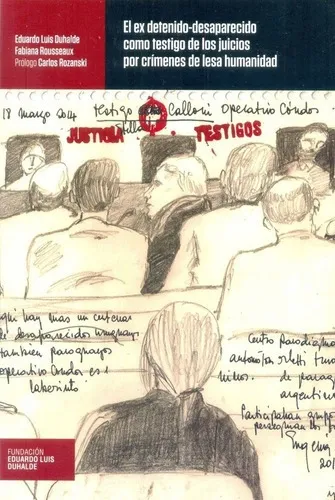 Eduardo Luis Duhalde
Fabiana Rousseaux
Prólogo Carlos Rozanski
El ex detenido-desaparecido
como testigo de los juicios
por crímenes de lesa humanidad
18 marzo 2014 testigo Calloni Operativo Cóndor
JUSTICIA TESTIGOS
qui hay mas un centenar
de desaparecidos uruguayos
tambien paraguayos
operativo Condor es
laberinto
Centro paradigma
de
argentin
Participaban grup
FUNDACIÓN
EDUARDO LUIS
DUHALDE